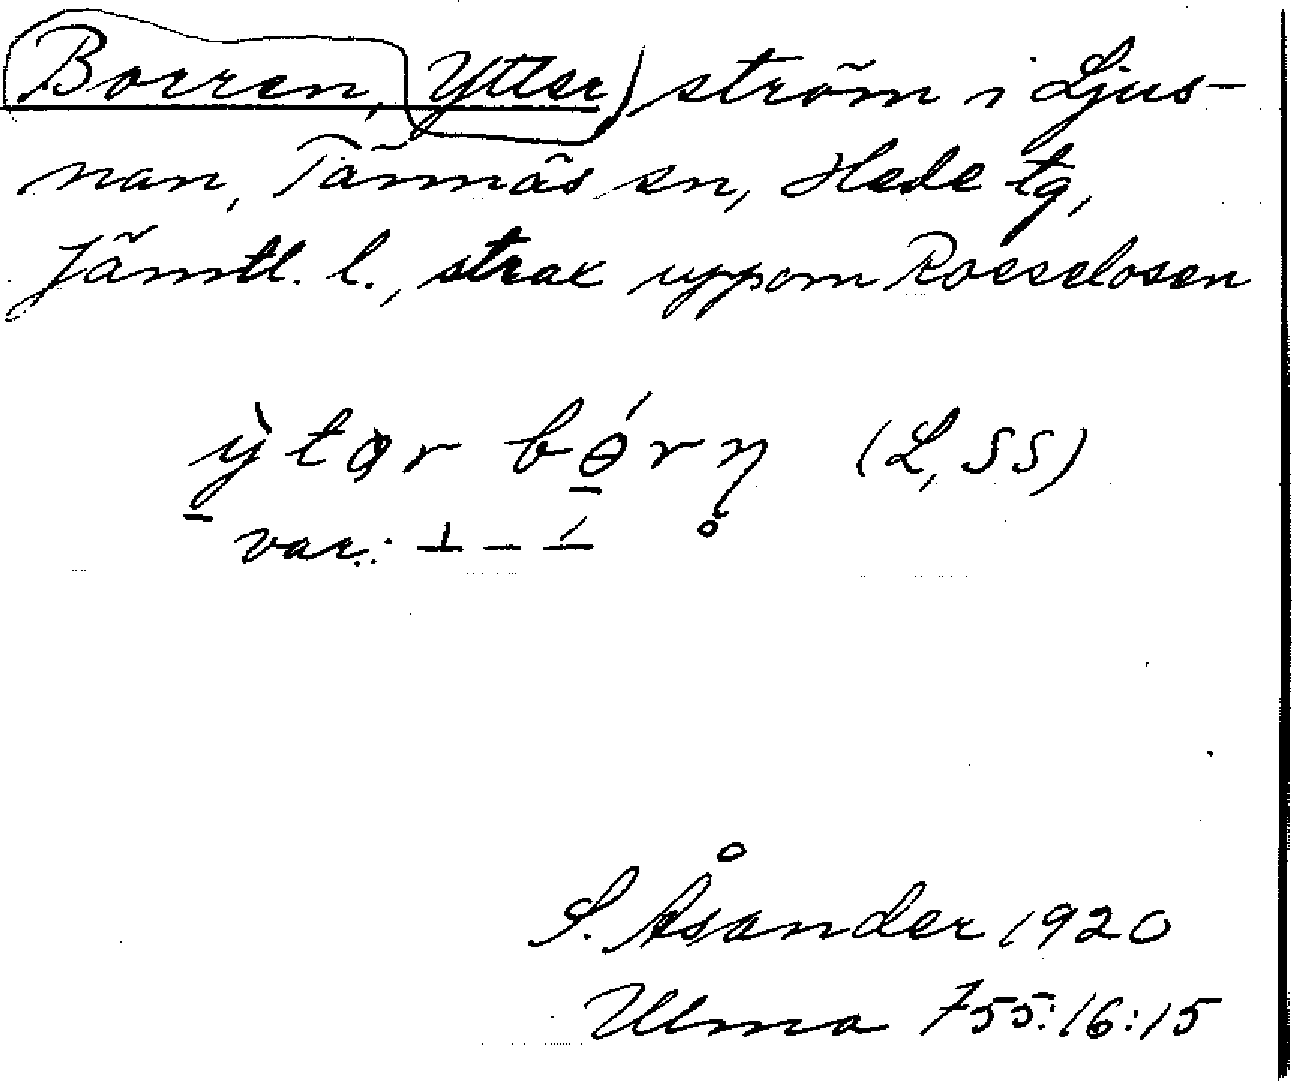 Borren, Ytter ström i Ljus-
nan, Tännäs sn, Hede tg,
Jämtl. l., strax uppom
ẏtər bǿrn̥ (L, SS)
var.:
S. Åsander 1920
Ulma 755:16:15